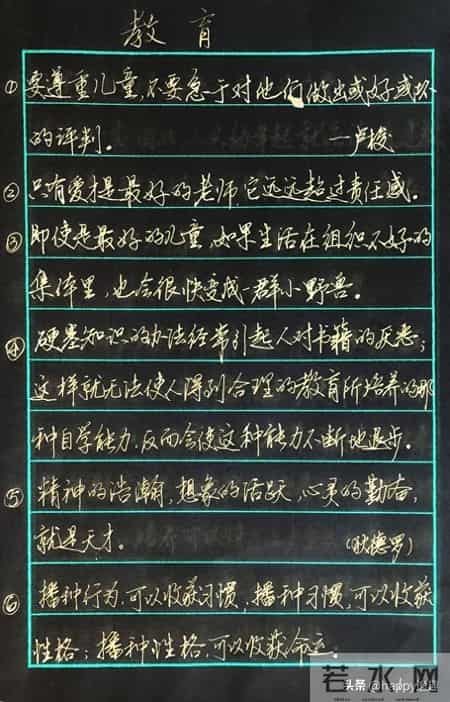 教育
① 要尊重儿童,不要急于对他们做出或好或坏
的评判。 —卢梭
② 只有爱才是最好的老师,它远远超过责任感。
③ 即使是最好的儿童,如果生活在组织不好的
集体里,也会很快变成一群小野兽。
④ 硬塞知识的办法经常引起人对书籍的厌恶;
这样就无法使人得到合理的教育所培养的那
种自学能力,反而会使这种能力不断地退步。
⑤ 精神的浩瀚,想象的活跃,心灵的勤奋,
就是天才。 (狄德罗)
⑥ 播种行为,可以收获习惯,播种习惯,可以收获
性格;播种性格,可以收获命运。
若水网
头条 @happy